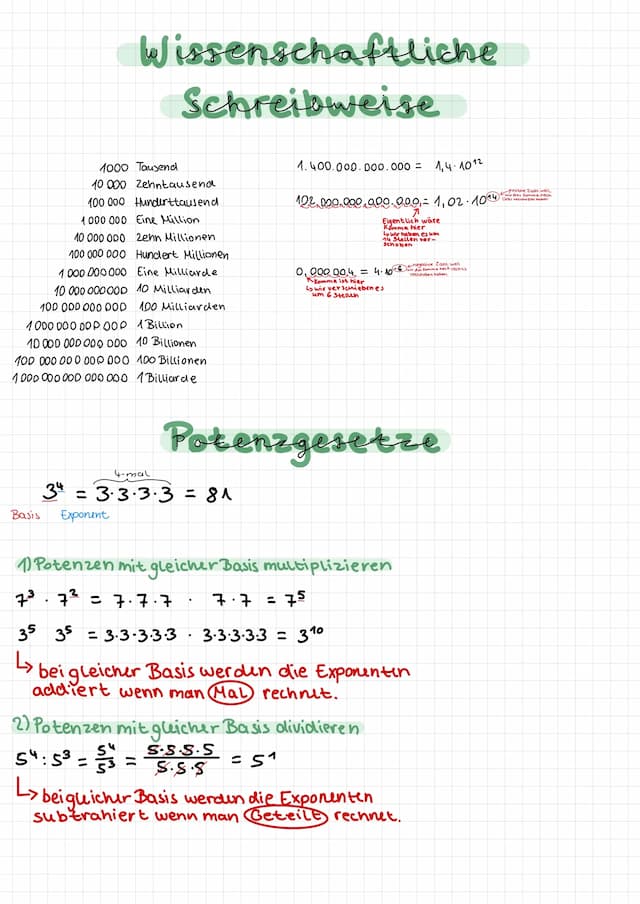 Wissenschaftliche
Schreibweise
1000 Tausend
10 000 Zehntausend
100 000 Hunderttausend
1 000 000 Eine Million
10 000 000 Zehn Millionen
100 000 000 Hundert Millionen
1 000 000 000 Eine Milliarde
10 000 000 000 10 Milliarden
100 000 000 000 100 Milliarden
1 000 000 000 000 1 Billion
10 000 000 000 000 10 Billionen
100 000 000 000 000 100 Billionen
1 000 000 000 000 000 1 Billiarde
1.400.000.000.000 = 1,4 · 10¹²
102.000.000.000.000, = 1,02 · 10¹⁴
positive Zahl weil
Eigentlich wäre
Komma hier
↳ wir haben es um
14 Stellen ver-
schoben
0,000004 = 4 · 10⁻⁶
negative Zahl weil
Komma ist hier
↳ wir verschieben es
um 6 Stellen
Potenzgesetze
4-mal
3⁴ = 3 · 3 · 3 · 3 = 81
Basis Exponent
1) Potenzen mit gleicher Basis multiplizieren
7³ · 7² = 7 · 7 · 7 · 7 · 7 = 7⁵
3⁵ 3⁵ = 3·3·3·3·3 · 3·3·3·3·3 = 3¹⁰
↳ bei gleicher Basis werden die Exponenten
addiert wenn man Mal rechnet.
2) Potenzen mit gleicher Basis dividieren
5⁴ : 5³ = 5⁴/5³ = 5·5·5·5/5·5·5 = 5¹
↳ bei gleicher Basis werden die Exponenten
subtrahiert wenn man Geteilt rechnet.